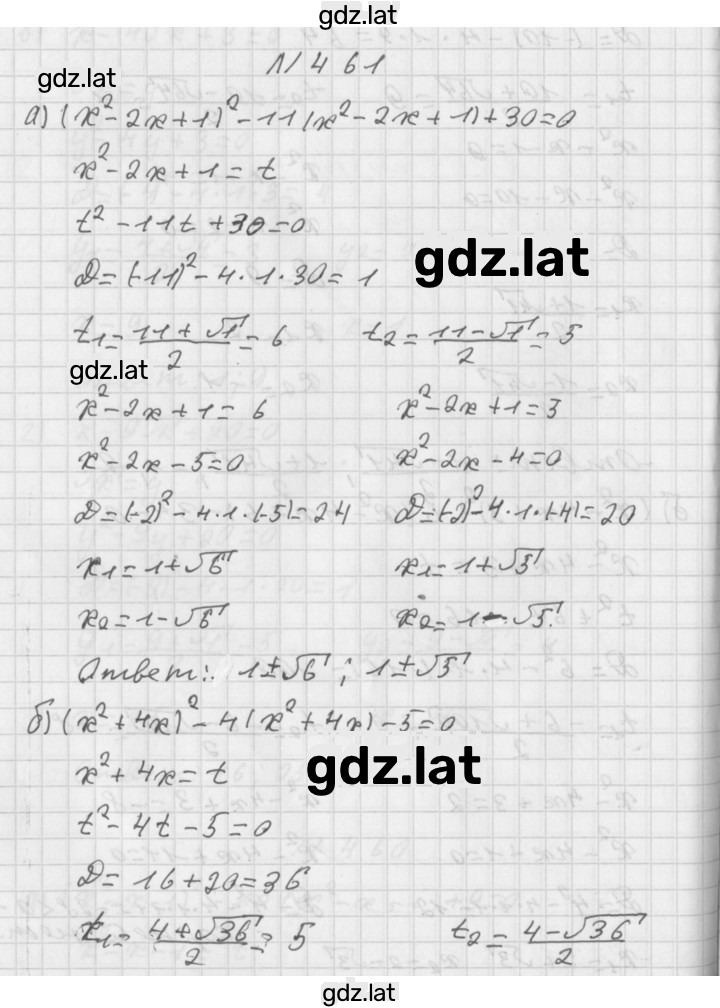 gdz.lat
N 461
gdz.lat
а) (x²-2x+1)²-11(x²-2x+1)+30=0
x²-2x+1=t
t²-11t+30=0
gdz.lat
D=(-11)²-4·1·30=1
t₁=(11+√1)/2=6 t₂=(11-√1)/2=5
gdz.lat
x²-2x+1=6 x²-2x+1=5
x²-2x-5=0 x²-2x-4=0
D=(-2)²-4·1·(-5)=24 D=(-2)²-4·1·(-4)=20
x₁=1+√6 x₁=1+√5
x₂=1-√6 x₂=1-√5
Ответ: 1±√6; 1±√5
б) (x²+4x)²-4(x²+4x)-5=0
gdz.lat
x²+4x=t
t²-4t-5=0
D=16+20=36
t₁=(4+√36)/2=5 t₂=(4-√36)/2
gdz.lat